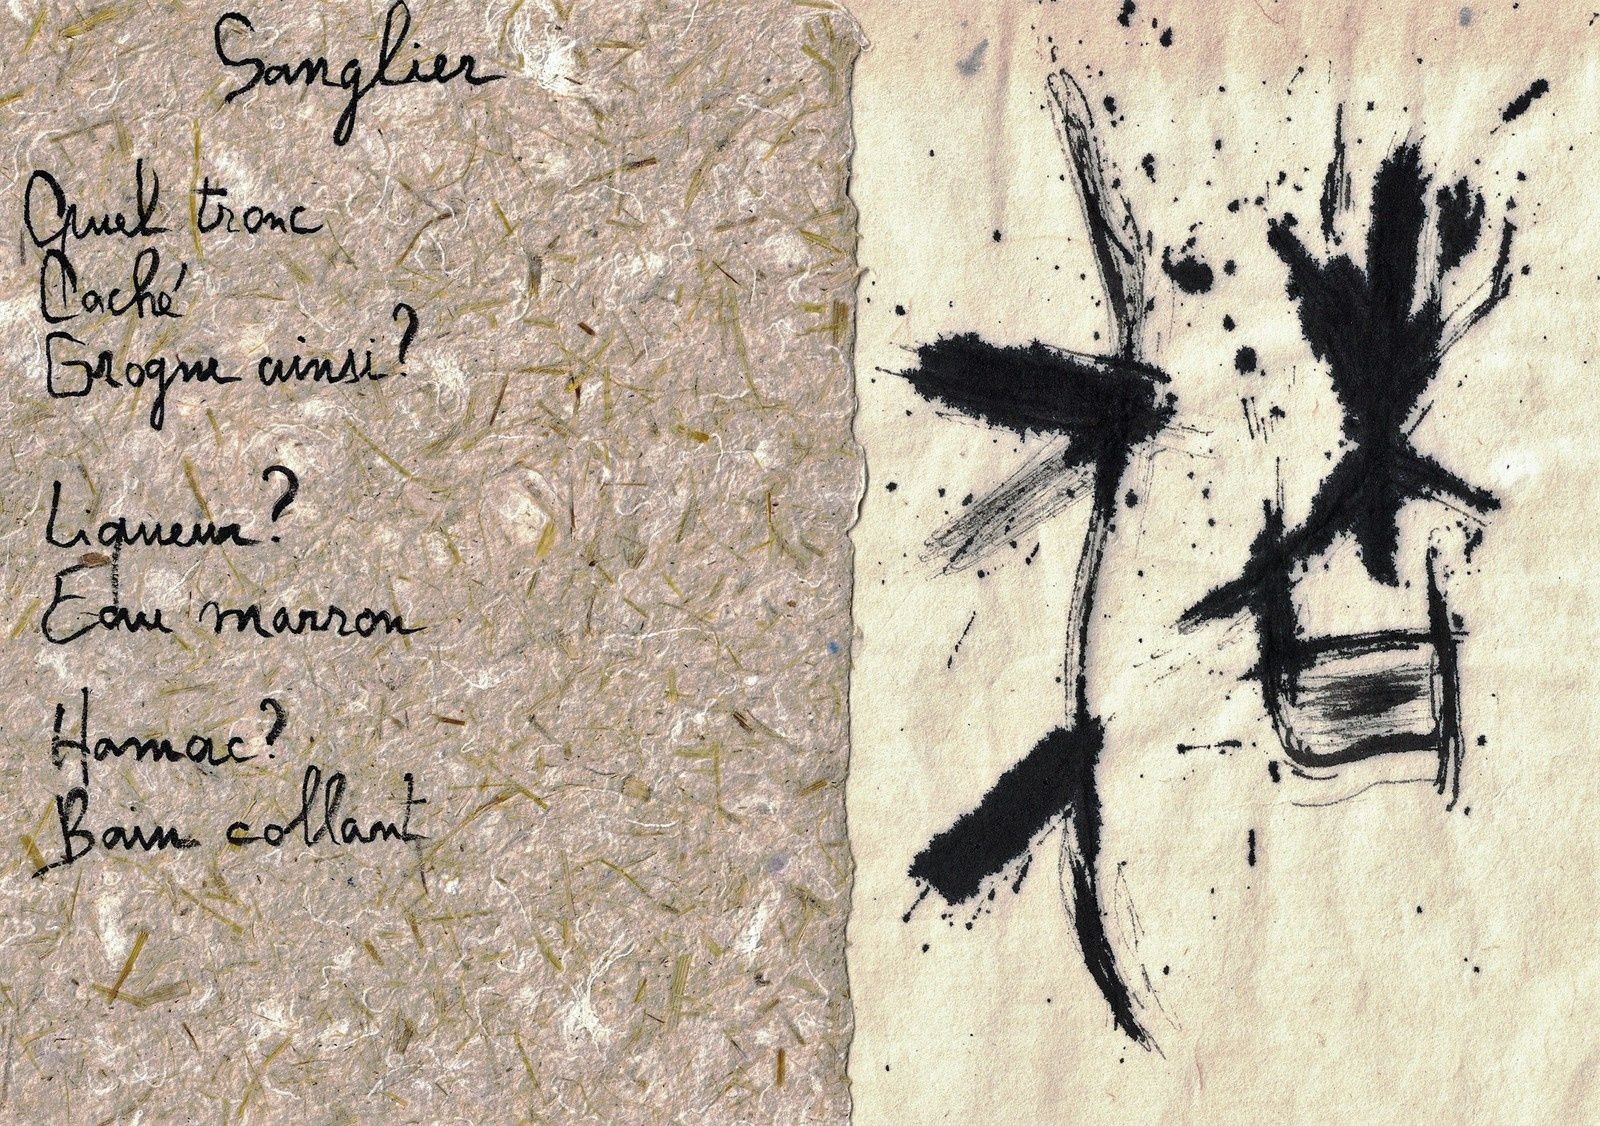 Sanglier
Quel tronc
Caché
Grogne ainsi?
Liqueur?
Eau marron
Hamac?
Bain collant